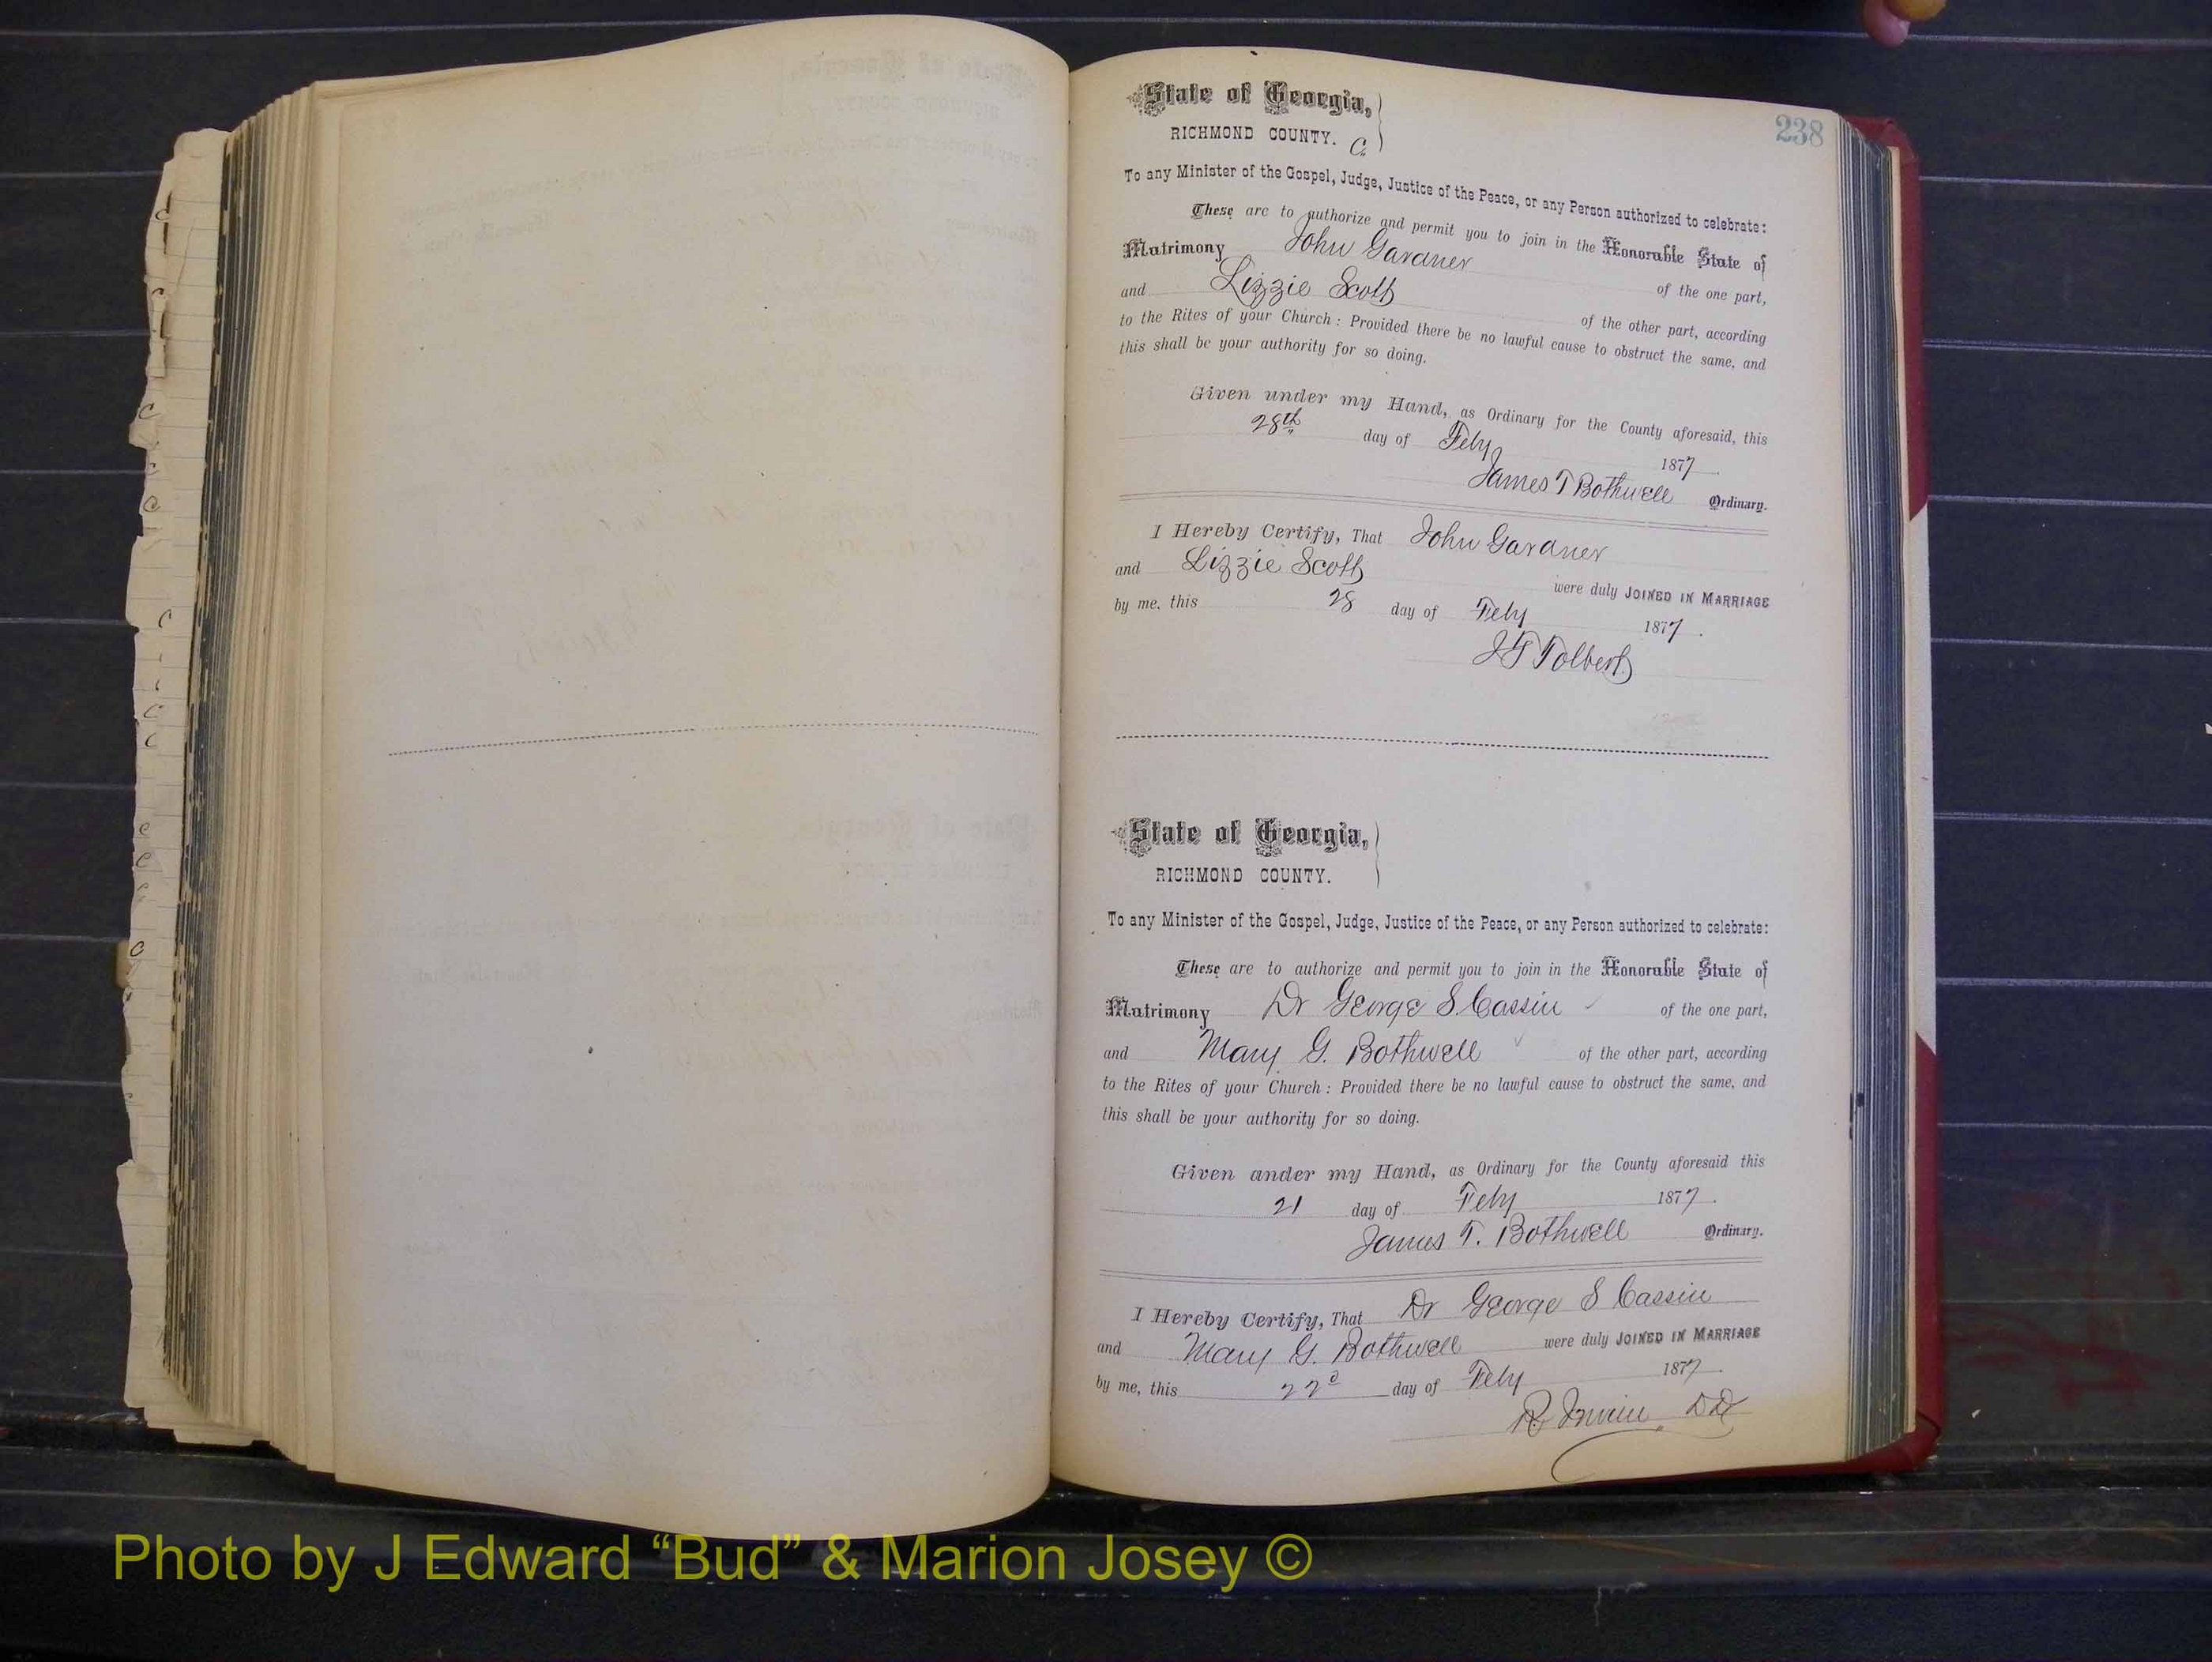 238
State of Georgia,
RICHMOND COUNTY. C.
To any Minister of the Gospel, Judge, Justice of the Peace, or any Person authorized to celebrate:
These are to authorize and permit you to join in the Honorable State of
Matrimony John Gardner of the one part,
and Lizzie Scott of the other part, according
to the Rites of your Church: Provided there be no lawful cause to obstruct the same, and
this shall be your authority for so doing.
Given under my Hand, as Ordinary for the County aforesaid, this
28th day of Feby 1877
James T Bothwell Ordinary.
I Hereby Certify, That John Gardner
and Lizzie Scott were duly JOINED IN MARRIAGE
by me, this 28 day of Feby 1877.
J T Tolbert
State of Georgia,
RICHMOND COUNTY.
To any Minister of the Gospel, Judge, Justice of the Peace, or any Person authorized to celebrate:
These are to authorize and permit you to join in the Honorable State of
Matrimony Dr George S. Cassin of the one part,
and Mary G. Bothwell of the other part, according
to the Rites of your Church: Provided there be no lawful cause to obstruct the same, and
this shall be your authority for so doing.
Given under my Hand, as Ordinary for the County aforesaid this
21 day of Feby 1877.
James T. Bothwell Ordinary.
I Hereby Certify, That Dr George S Cassin
and Mary G. Bothwell were duly JOINED IN MARRIAGE
by me, this 22d day of Feby 1877.
R Irvine DD
Photo by J Edward “Bud” & Marion Josey ©